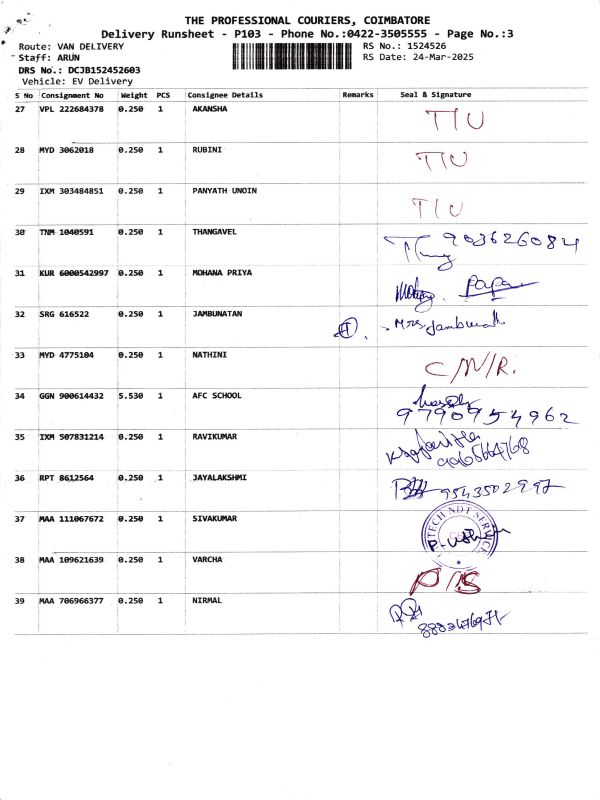 THE PROFESSIONAL COURIERS, COIMBATORE
Delivery Runsheet - P103 - Phone No.:0422-3505555 - Page No.:3
Route: VAN DELIVERY RS No.: 1524526
Staff: ARUN RS Date: 24-Mar-2025
DRS No.: DCJB152452603
Vehicle: EV Delivery
S No Consignment No Weight PCS Consignee Details Remarks Seal & Signature
27 VPL 222684378 0.250 1 AKANSHA T/U
28 MYD 3062018 0.250 1 RUBINI T/U
29 IXM 303484851 0.250 1 PANYATH UNOIN T/U
30 TNM 1040591 0.250 1 THANGAVEL 903626084
31 KUR 6000542997 0.250 1 MOHANA PRIYA Papa
32 SRG 616522 0.250 1 JAMBUNATAN Mrs
33 MYD 4775104 0.250 1 NATHINI C/N/R.
34 GGN 900614432 5.530 1 AFC SCHOOL
9790954962
35 IXM 507831214 0.250 1 RAVIKUMAR
36 RPT 8612564 0.250 1 JAYALAKSHMI 9543502997
37 MAA 111067672 0.250 1 SIVAKUMAR TECH NDT SERVICE
38 MAA 109621639 0.250 1 VARCHA P/S
39 MAA 706966377 0.250 1 NIRMAL